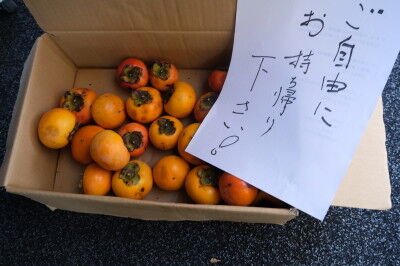 ご自由に
お持ち帰り
下さい。